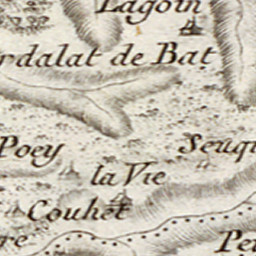 Lagoin
rdalat de Bat
Poey
Seuqu
la Vie
Couhet
re
Pe